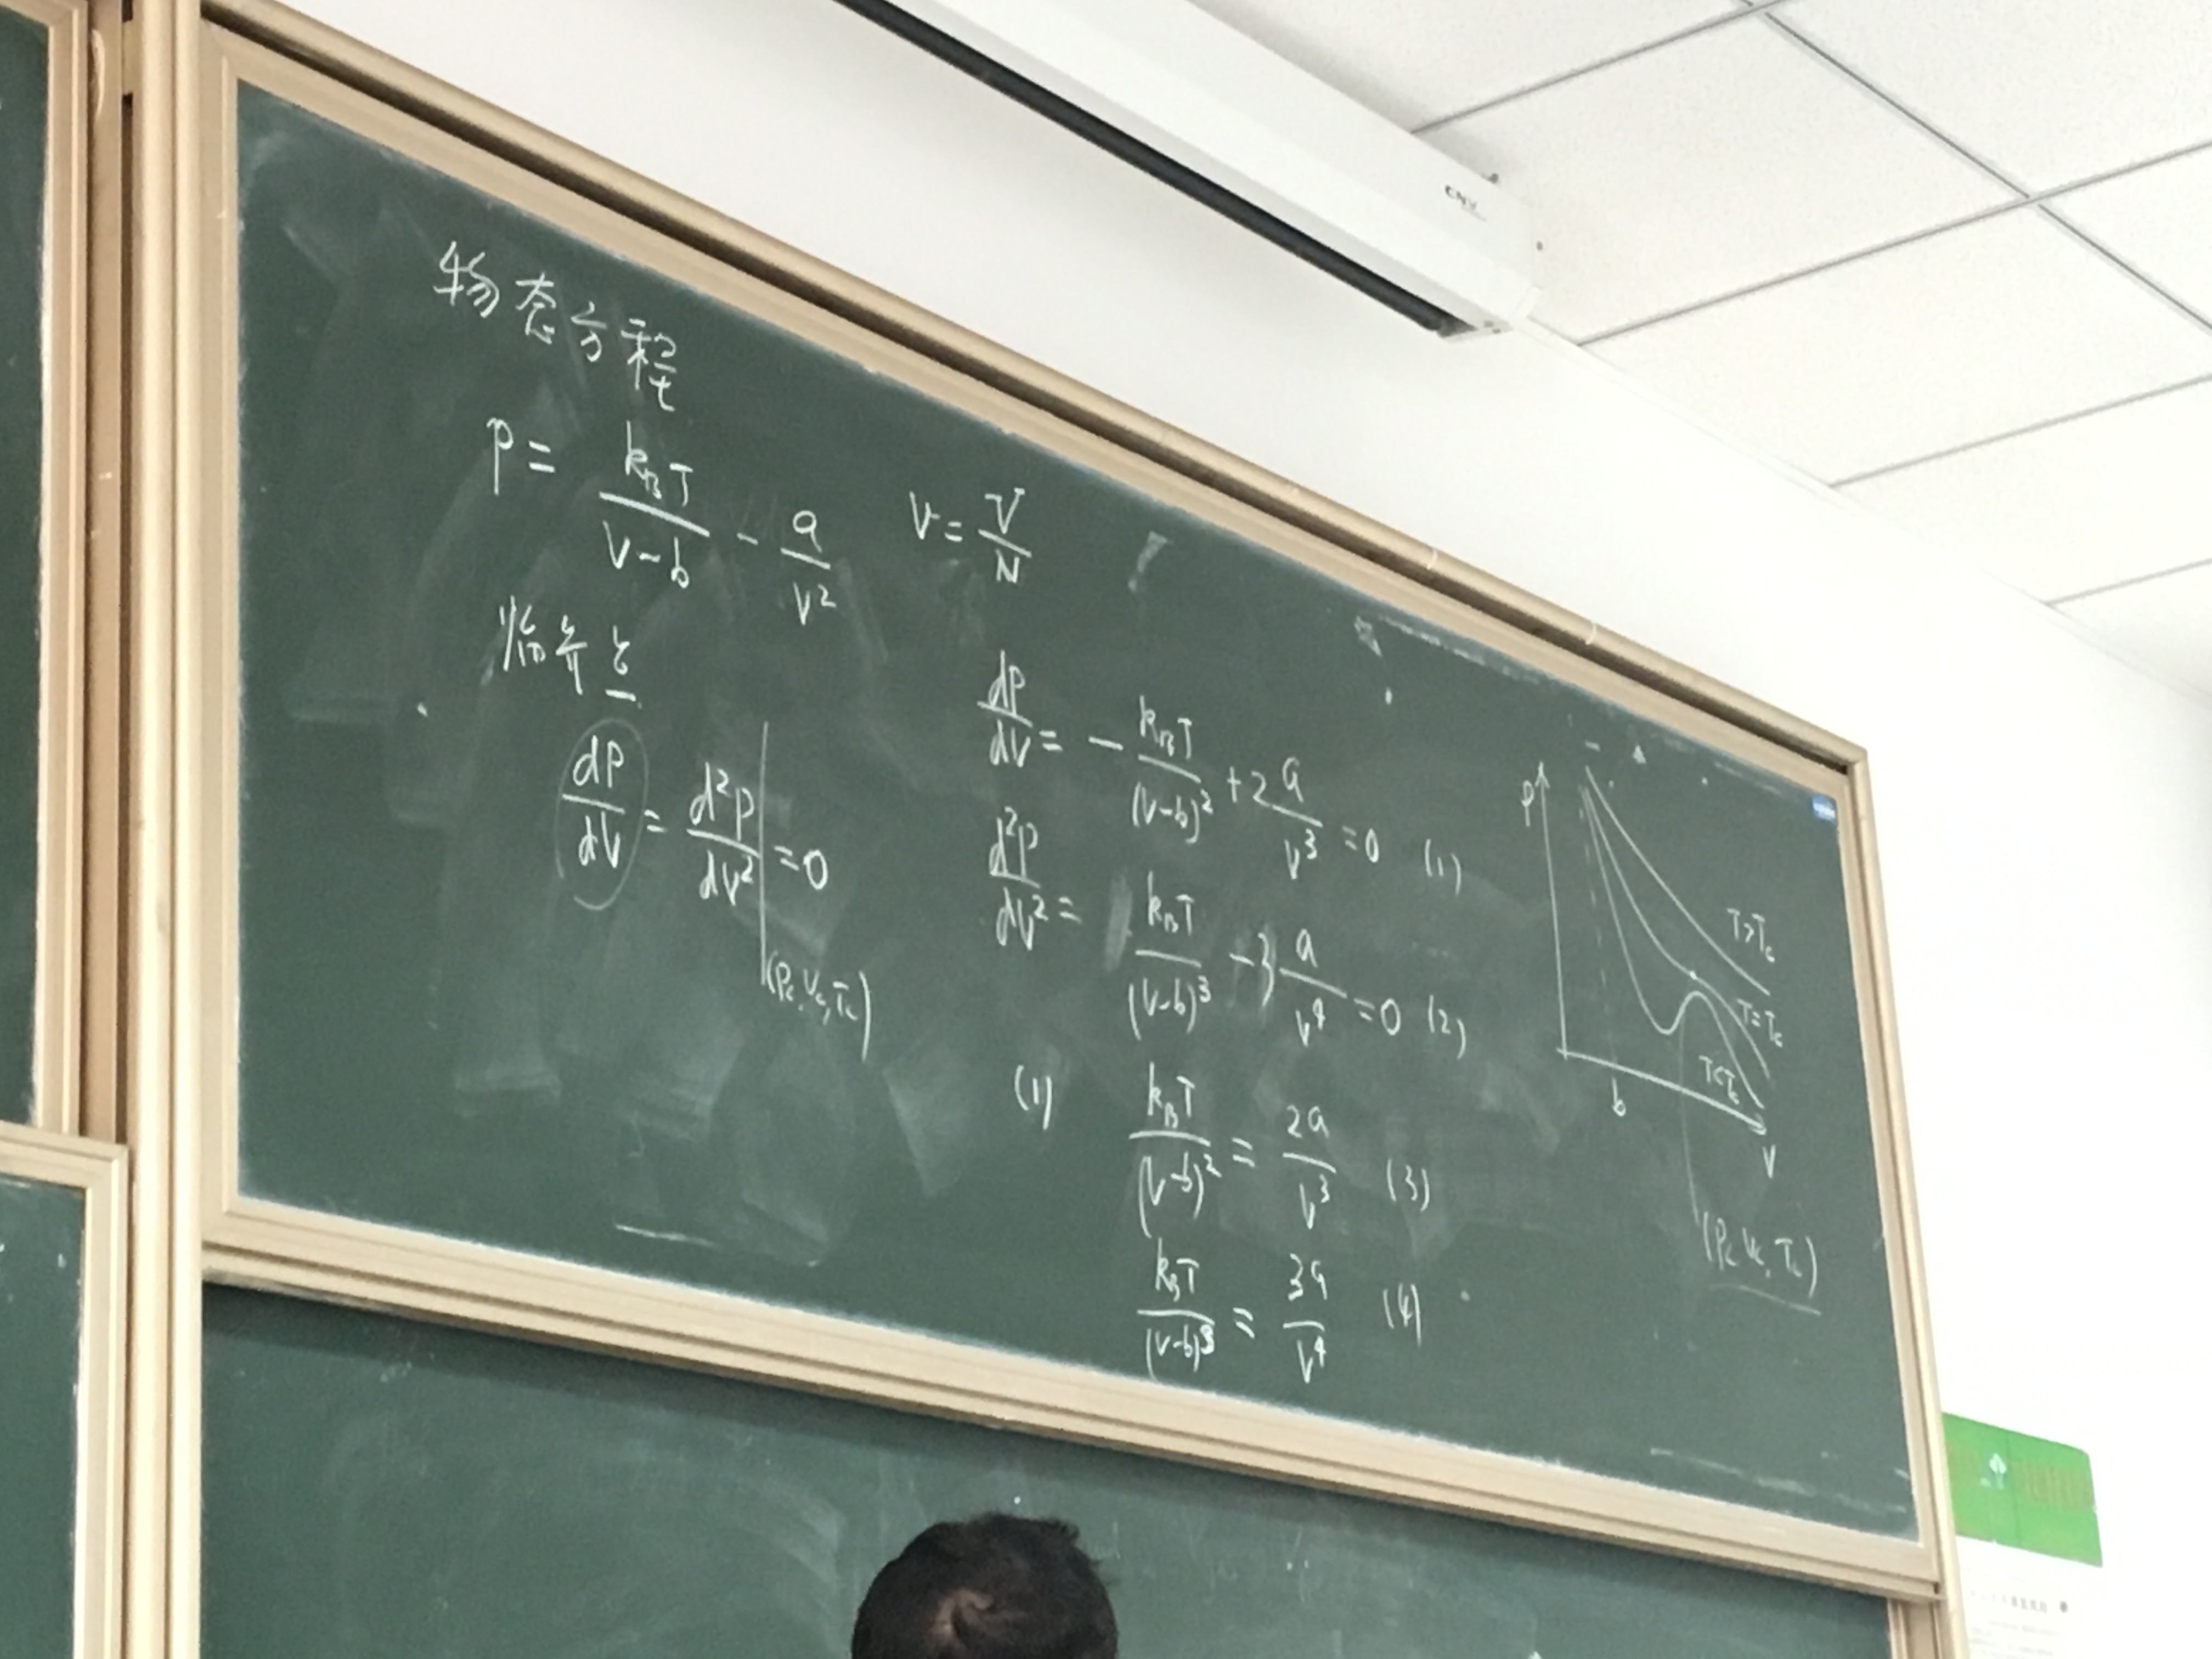 物态方程
P = k_BT/(v-b) - a/v²    v = V/N
临界点
dP/dv = d²P/dv² |(Pc, vc, Tc) = 0
dP/dv = - k_BT/(v-b)² + 2 a/v³ = 0 (1)
d²P/dv² = k_BT/(v-b)³ - 3 a/v⁴ = 0 (2)
(1) k_BT/(v-b)² = 2a/v³ (3)
k_BT/(v-b)³ = 3a/v⁴ (4)
P
T>Tc
T=Tc
T<Tc
b
v
(Pc vc, Tc)